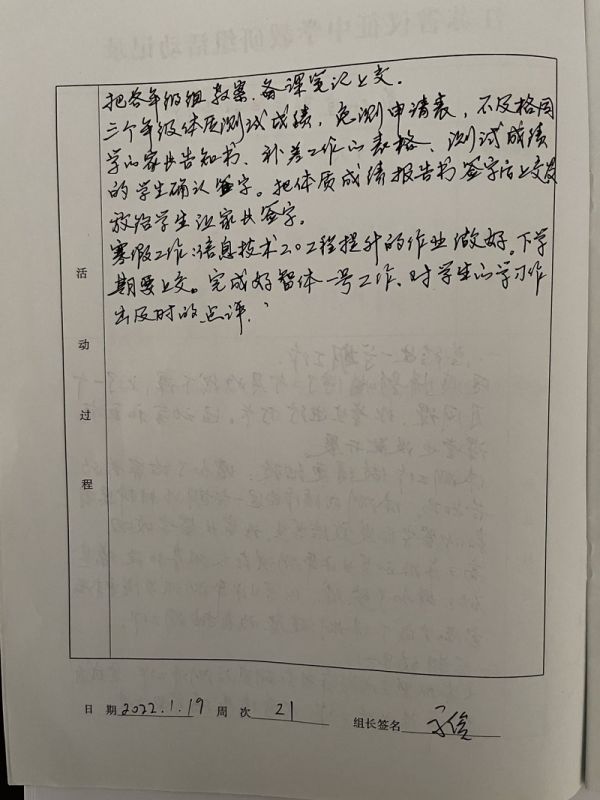 把各年级组教案、备课笔记上交.
三个年级体质测试成绩, 免测申请表, 不及格同
学的家长告知书、补差工作的表格、测试成绩
的学生确认签字。把体质成绩报告书签字后上交发
放给学生让家长签字.
寒假工作:信息技术2.0工程提升的作业做好。下学
期要上交。完成好智体一号工作、对学生的学习作
出及时的点评.
活动过程
日 期 2022.1.19 周 次 21
组长签名